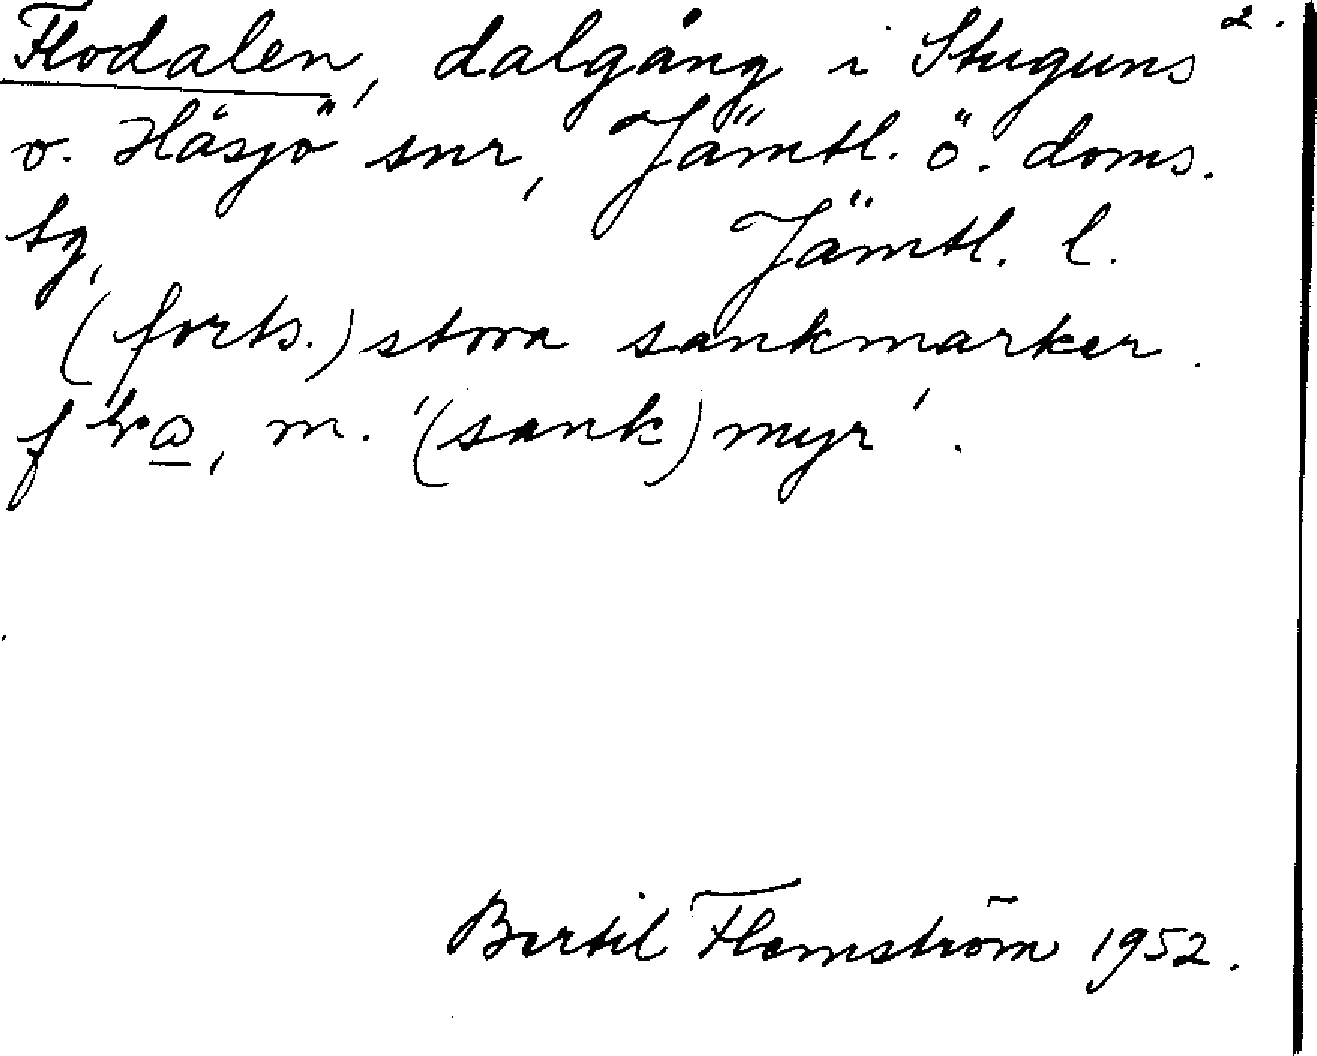 Flodalen, dalgång i Stuguns 2.
o. Håsjö snr, Jämtl. ö. doms.
sg, Jämtl. l.
(forts.) stora sankmarker.
m. '(sank)myr'.
Bertil Flemström 1952.